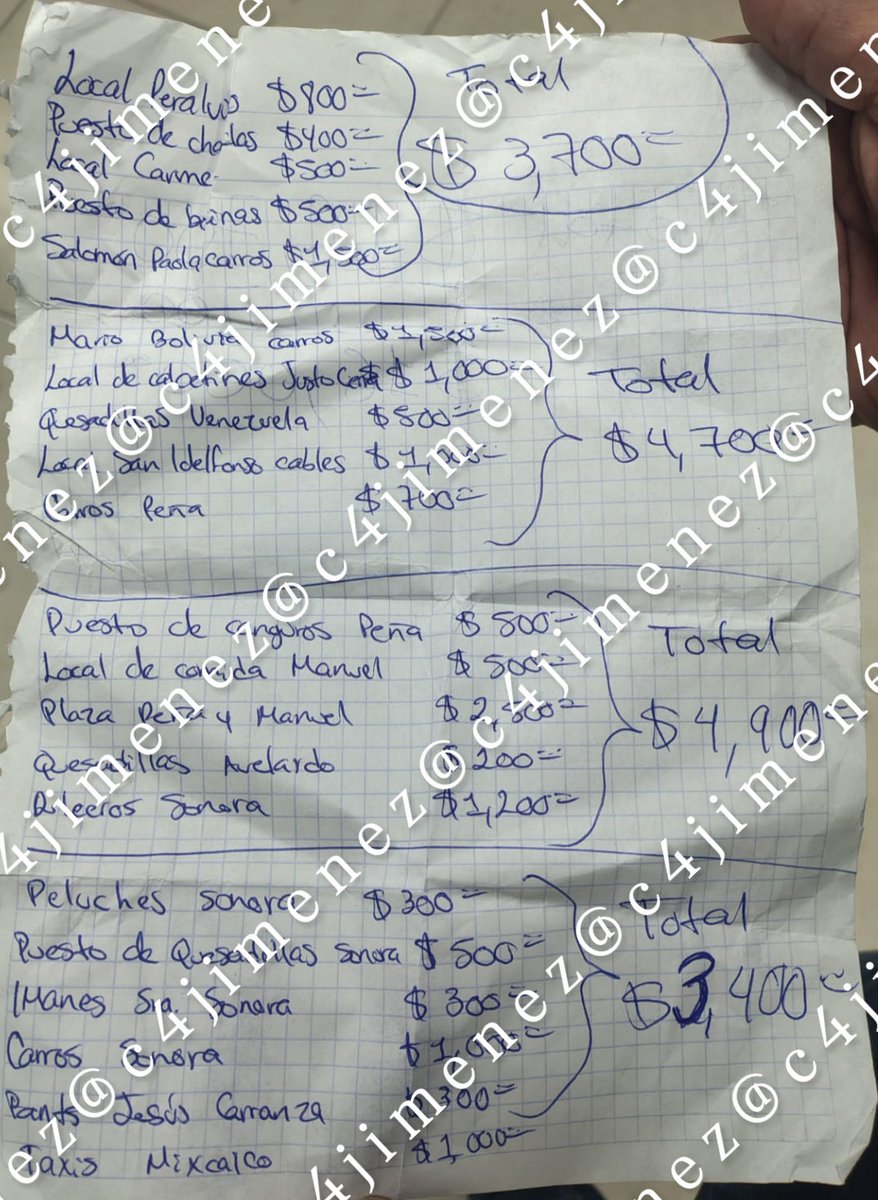 Local $800=
Puesto de $400=
Local Carme $500=
Puesto de $500=
Salomon Paola carros $1,500=
Total
$3,700=
Mario Bolivia carros $1,500=
Local de Justo $1,000=
Quesadillas Venezuela $500=
Local San Idelfonso cables $1,000=
Carros Peña $700=
Total
$4,700=
Puesto de Peña $500=
Local de Manuel $500=
Plaza Peña y Manuel $2,500=
Quesadillas Avelardo $200=
Sonora $1,200=
Total
$4,900=
Peluches sonora $300=
Puesto de Quesadillas sonora $500=
IManes Sra. Sonora $300=
Carros Sonora $1,000=
Pants Jesús Carranza $300=
Taxis Mixcalco $1,000=
Total
$3,400=
c4jimenez@c4jimenez@c4jimenez